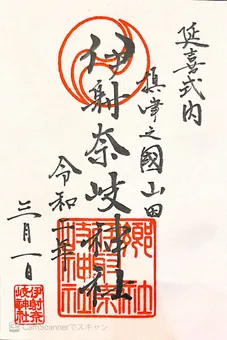 延喜式内
摂津之國山田
伊射奈岐神社
令和二年
三月一日
郷社
伊射奈岐神社
伊射奈岐神社
CamScannerでスキャン